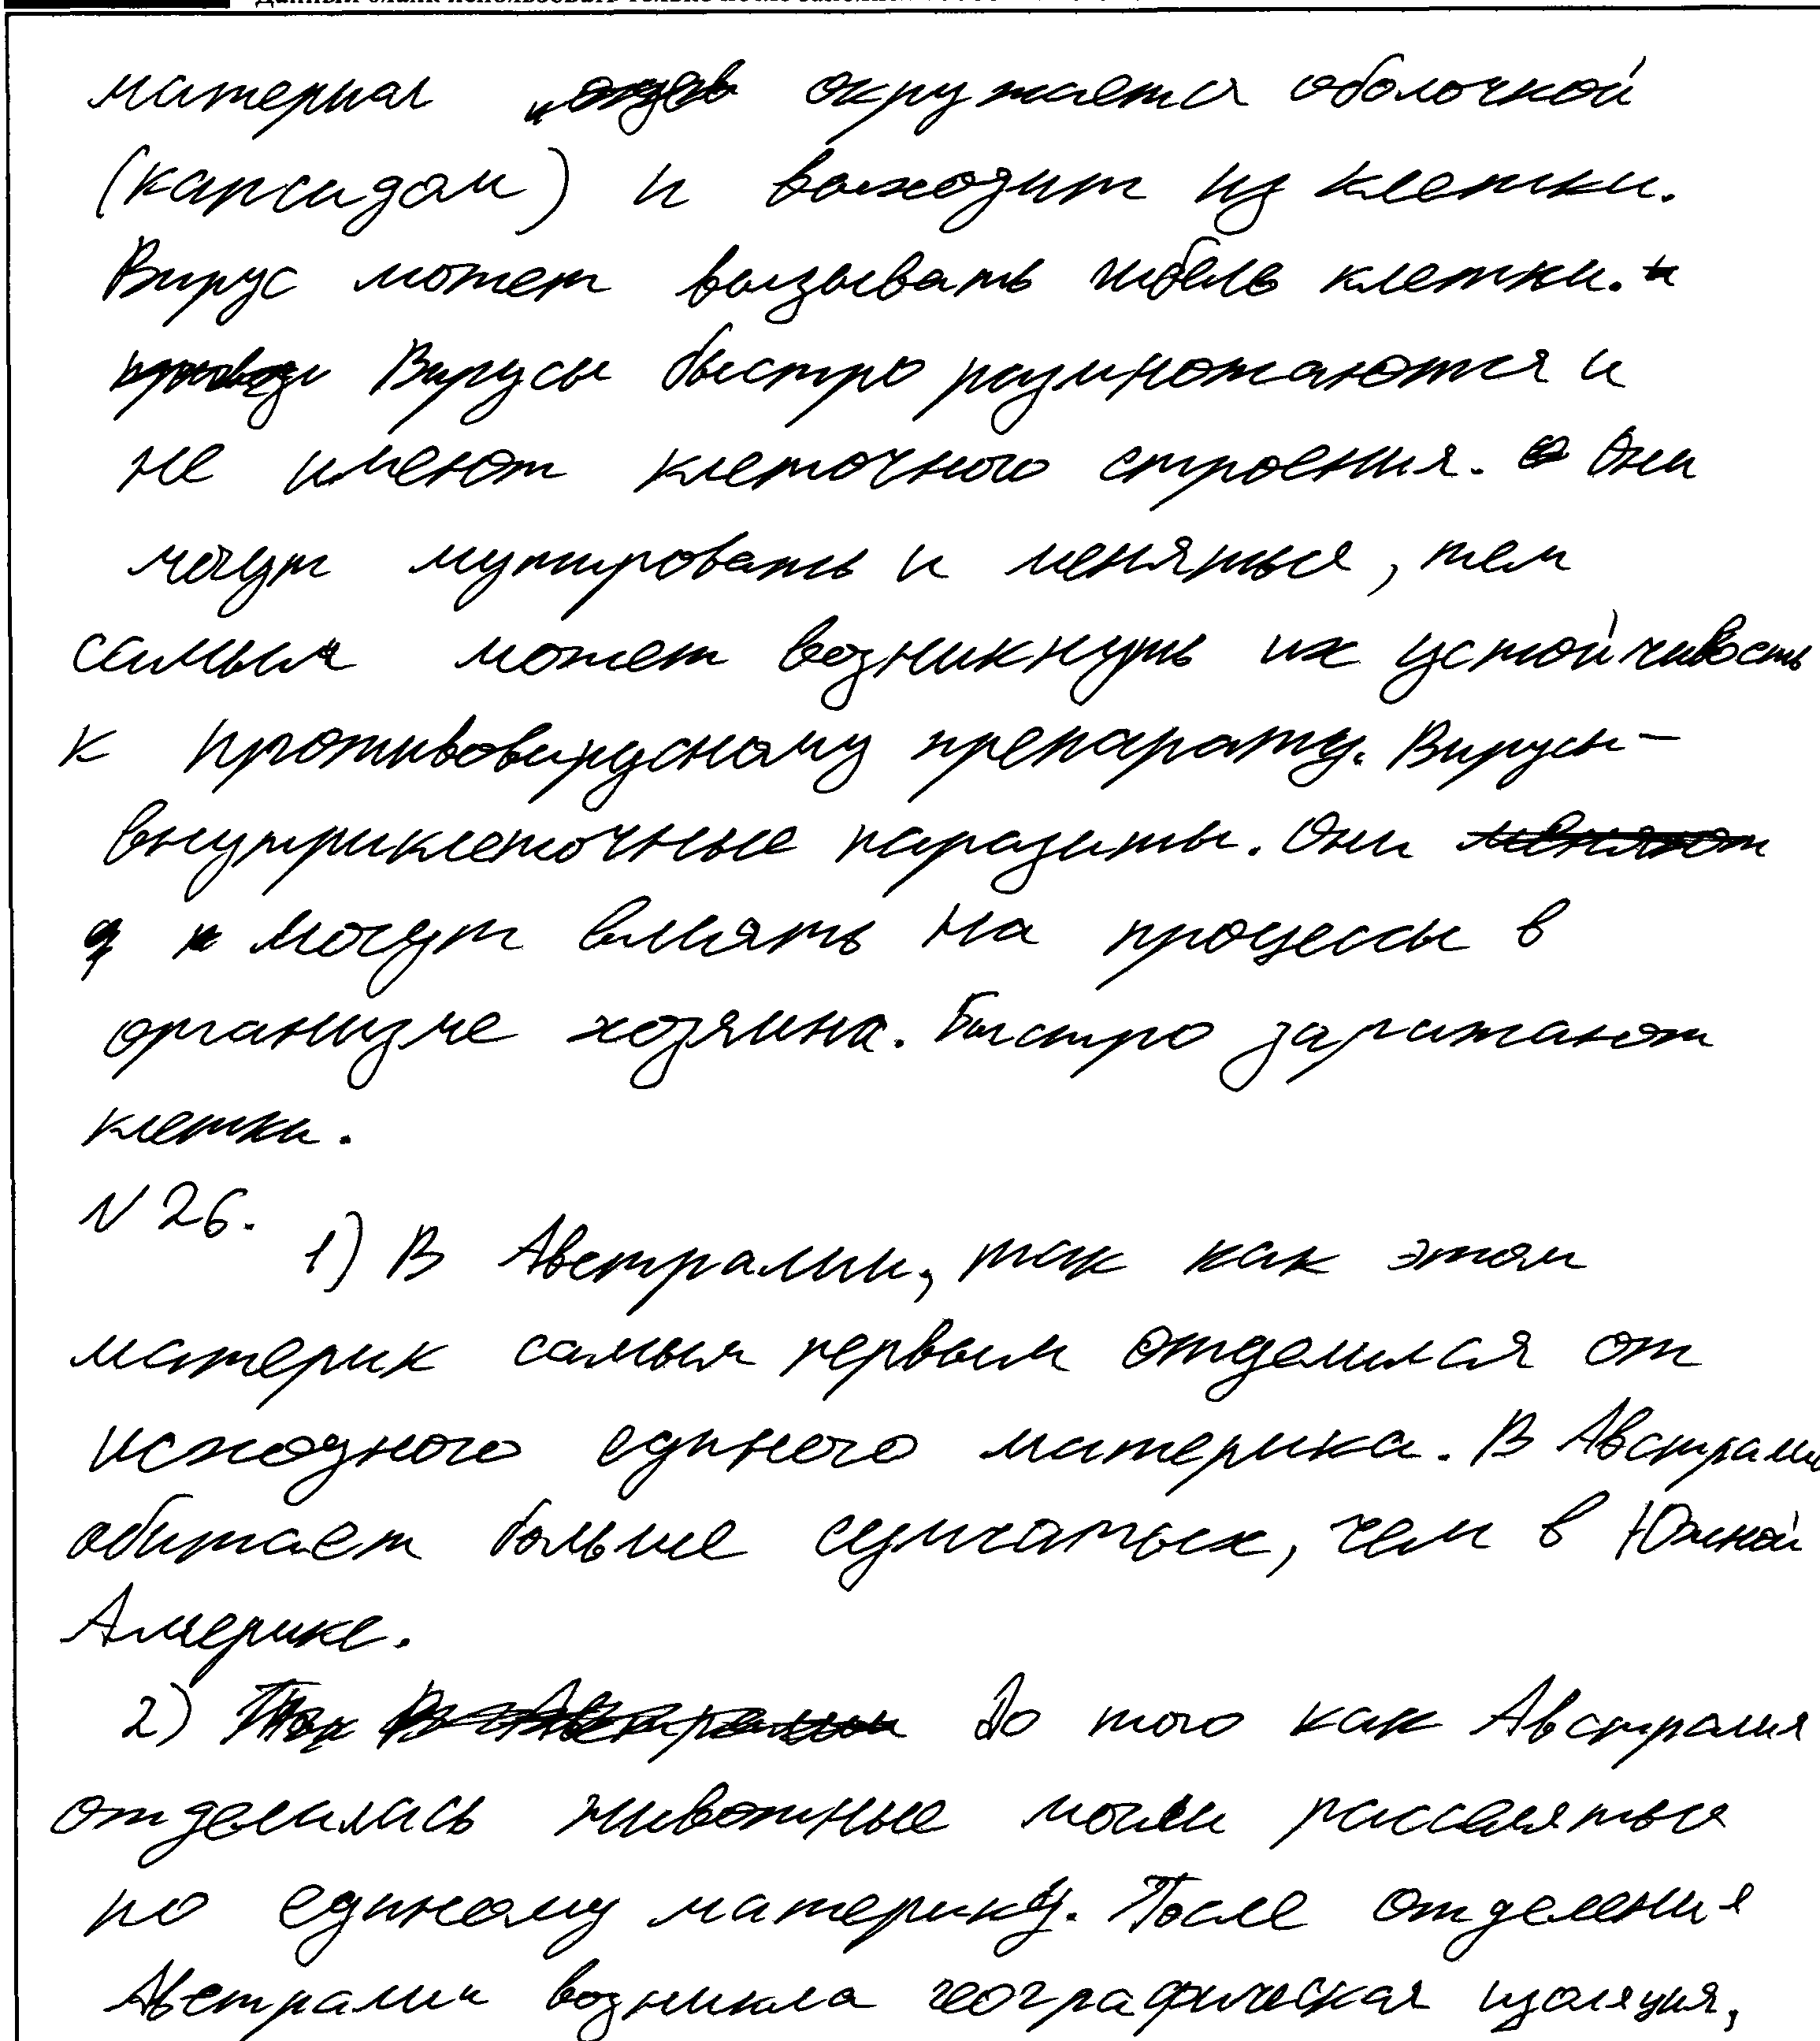 материал окружается оболочкой
(капсидом) и выходит из клетки.
Вирус может вызывать гибель клетки. и
Вирусы быстро размножаются и
не имеют клеточного строения. Они
могут мутировать и меняться, тем
самым может возникнуть их устойчивость
к противовирусному препарату. Вирусы –
внутриклеточные паразиты. Они меняют
могут влиять на процессы в
организме хозяина. Быстро заражают
клетки.
N 26.
1) В Австралии, так как этом
материк самым первым отделился от
исходного единого материка. В Австралии
обитает больше сумчатых, чем в Южной
Америке.
2) Так В Австралии До того как Австралия
отделилась животные могли расселяться
по единому материку. После отделения
Австралии возникла географическая изоляция,